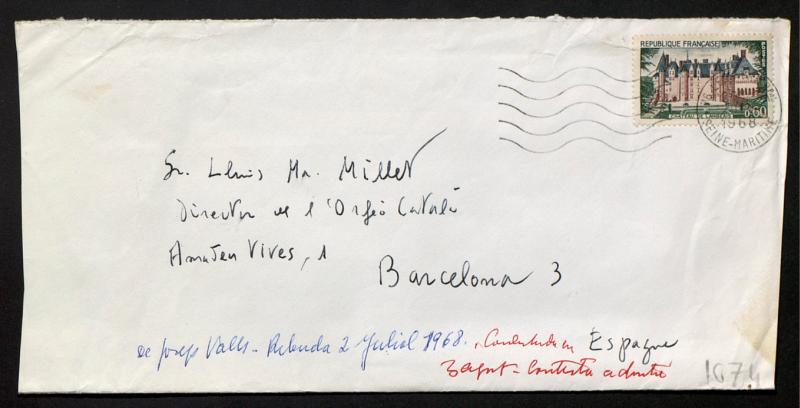 REPUBLIQUE FRANÇAISE
0,60
1968
SEINE-MARITIME
Sr. Lluis Ma. Millet
Director de l'Orfeó Català
Amadeu Vives, 1
Barcelona 3
de Josep Valls - Rebuda 2 Juliol 1968. Contestada en Espagne
3 agost - Contesta adjunta
1074